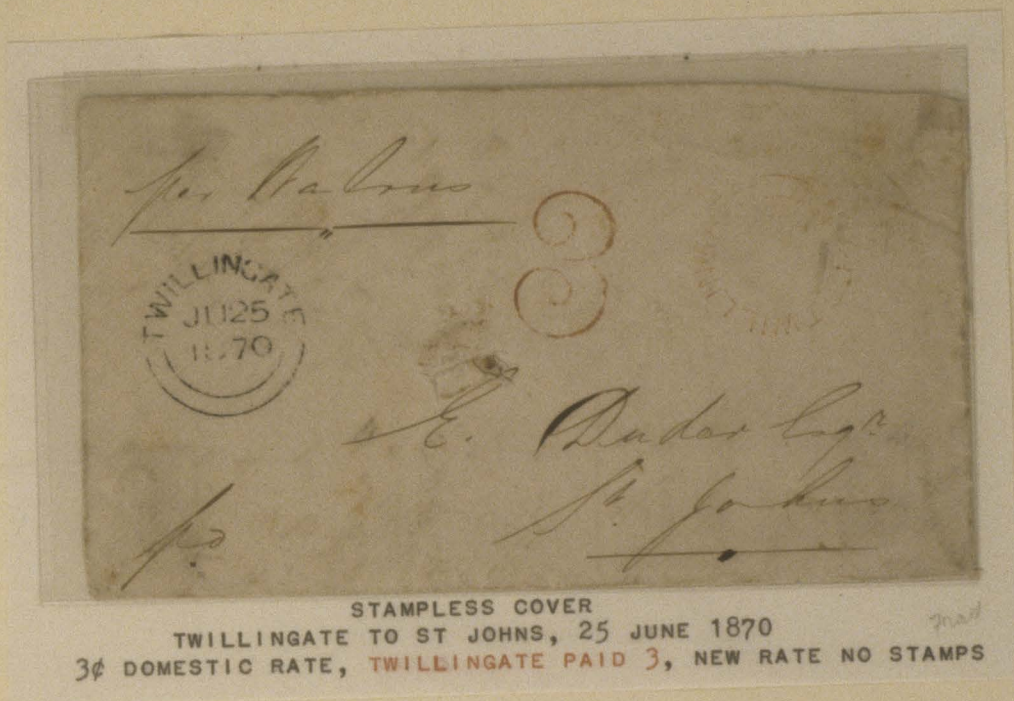 per Walrus
3
TWILLINGATE
JU 25
1870
E. Duder Esqr
St. Johns
pd
STAMPLESS COVER
TWILLINGATE TO ST JOHNS, 25 JUNE 1870
3¢ DOMESTIC RATE, TWILLINGATE PAID 3, NEW RATE NO STAMPS